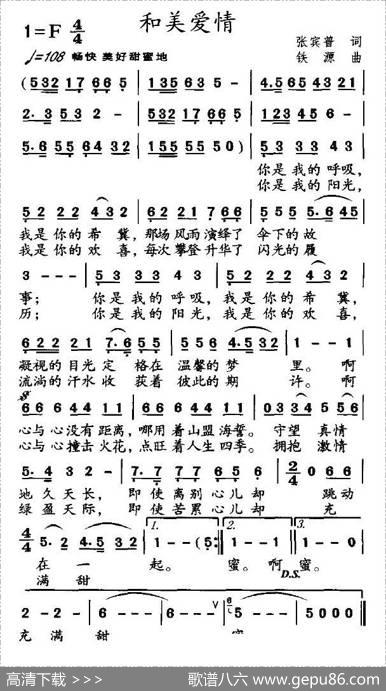 和美爱情
1=F 4/4
张宾普 词
♩=108 畅快 美好甜蜜地
铁源 曲
(5 3 2 1 7 6 6 5 | 1 3 5 6 3 5 - | 4. 5 6 5 4 3 2 1
2. 3 5 3 2 - | 5 3 2 1 7 6 6 5 | 1 2 3 4 5 6 -
5. 6 5 5 6 4 3 2 | 1 5 5 5 5 5 0) | 5 3 3 3 4 3
你是我的呼吸,
你是我的阳光,
5 2 2 2 4 3 2 | 6 2 2 1 7 6 6 | 5 5 5 5. 6 4 5
我是你的希冀, 那场风雨演绎了 伞下的故
我是你的欢喜, 每次攀登升华了 闪光的履
3 - - - | 5 3 3 3 4 3 | 5 2 2 2 4 3 2
事; 你是我的呼吸, 我是你的希冀,
历; 你是我的阳光, 我是你的欢喜,
6 2 2 2 1 7. 6 5 | 5 5 6 4. 5 3 2 | 1 - - 1
凝视的目光定格在 温馨的梦 里。 啊
流淌的汗水收获着 彼此的期 许。 啊
𝄋 6 6 6 4 4 1 | 6 6 6 5 1 3 2 | 0 3 3 4 5 5 6
心与心没有距离, 哪用着山盟海誓。 守望真情
心与心撞击火花, 点旺着人生四季。 拥抱激情
5. 4 3 2 - | 7. 7 7 7 6 5 6 | 2/4 0 6 6
地久天长, 即使离别心儿却 跳动
绿盈天际, 即使苦累心儿却 充
4/4 5. 2 4 5 5 - | 1. 1 - - (5 :‖ 2. 1 - - 1 ‖ 3. 1 - - 0
在一 起。 蜜。 啊 蜜。
满甜
D.S.
2 - 2 - | 6 - - - | 6 - - ∨ 6 | 5 - - - | 5 0 0 0 ‖
充满甜 蜜。
高清下载 >>>
歌谱八六 www.gepu86.com